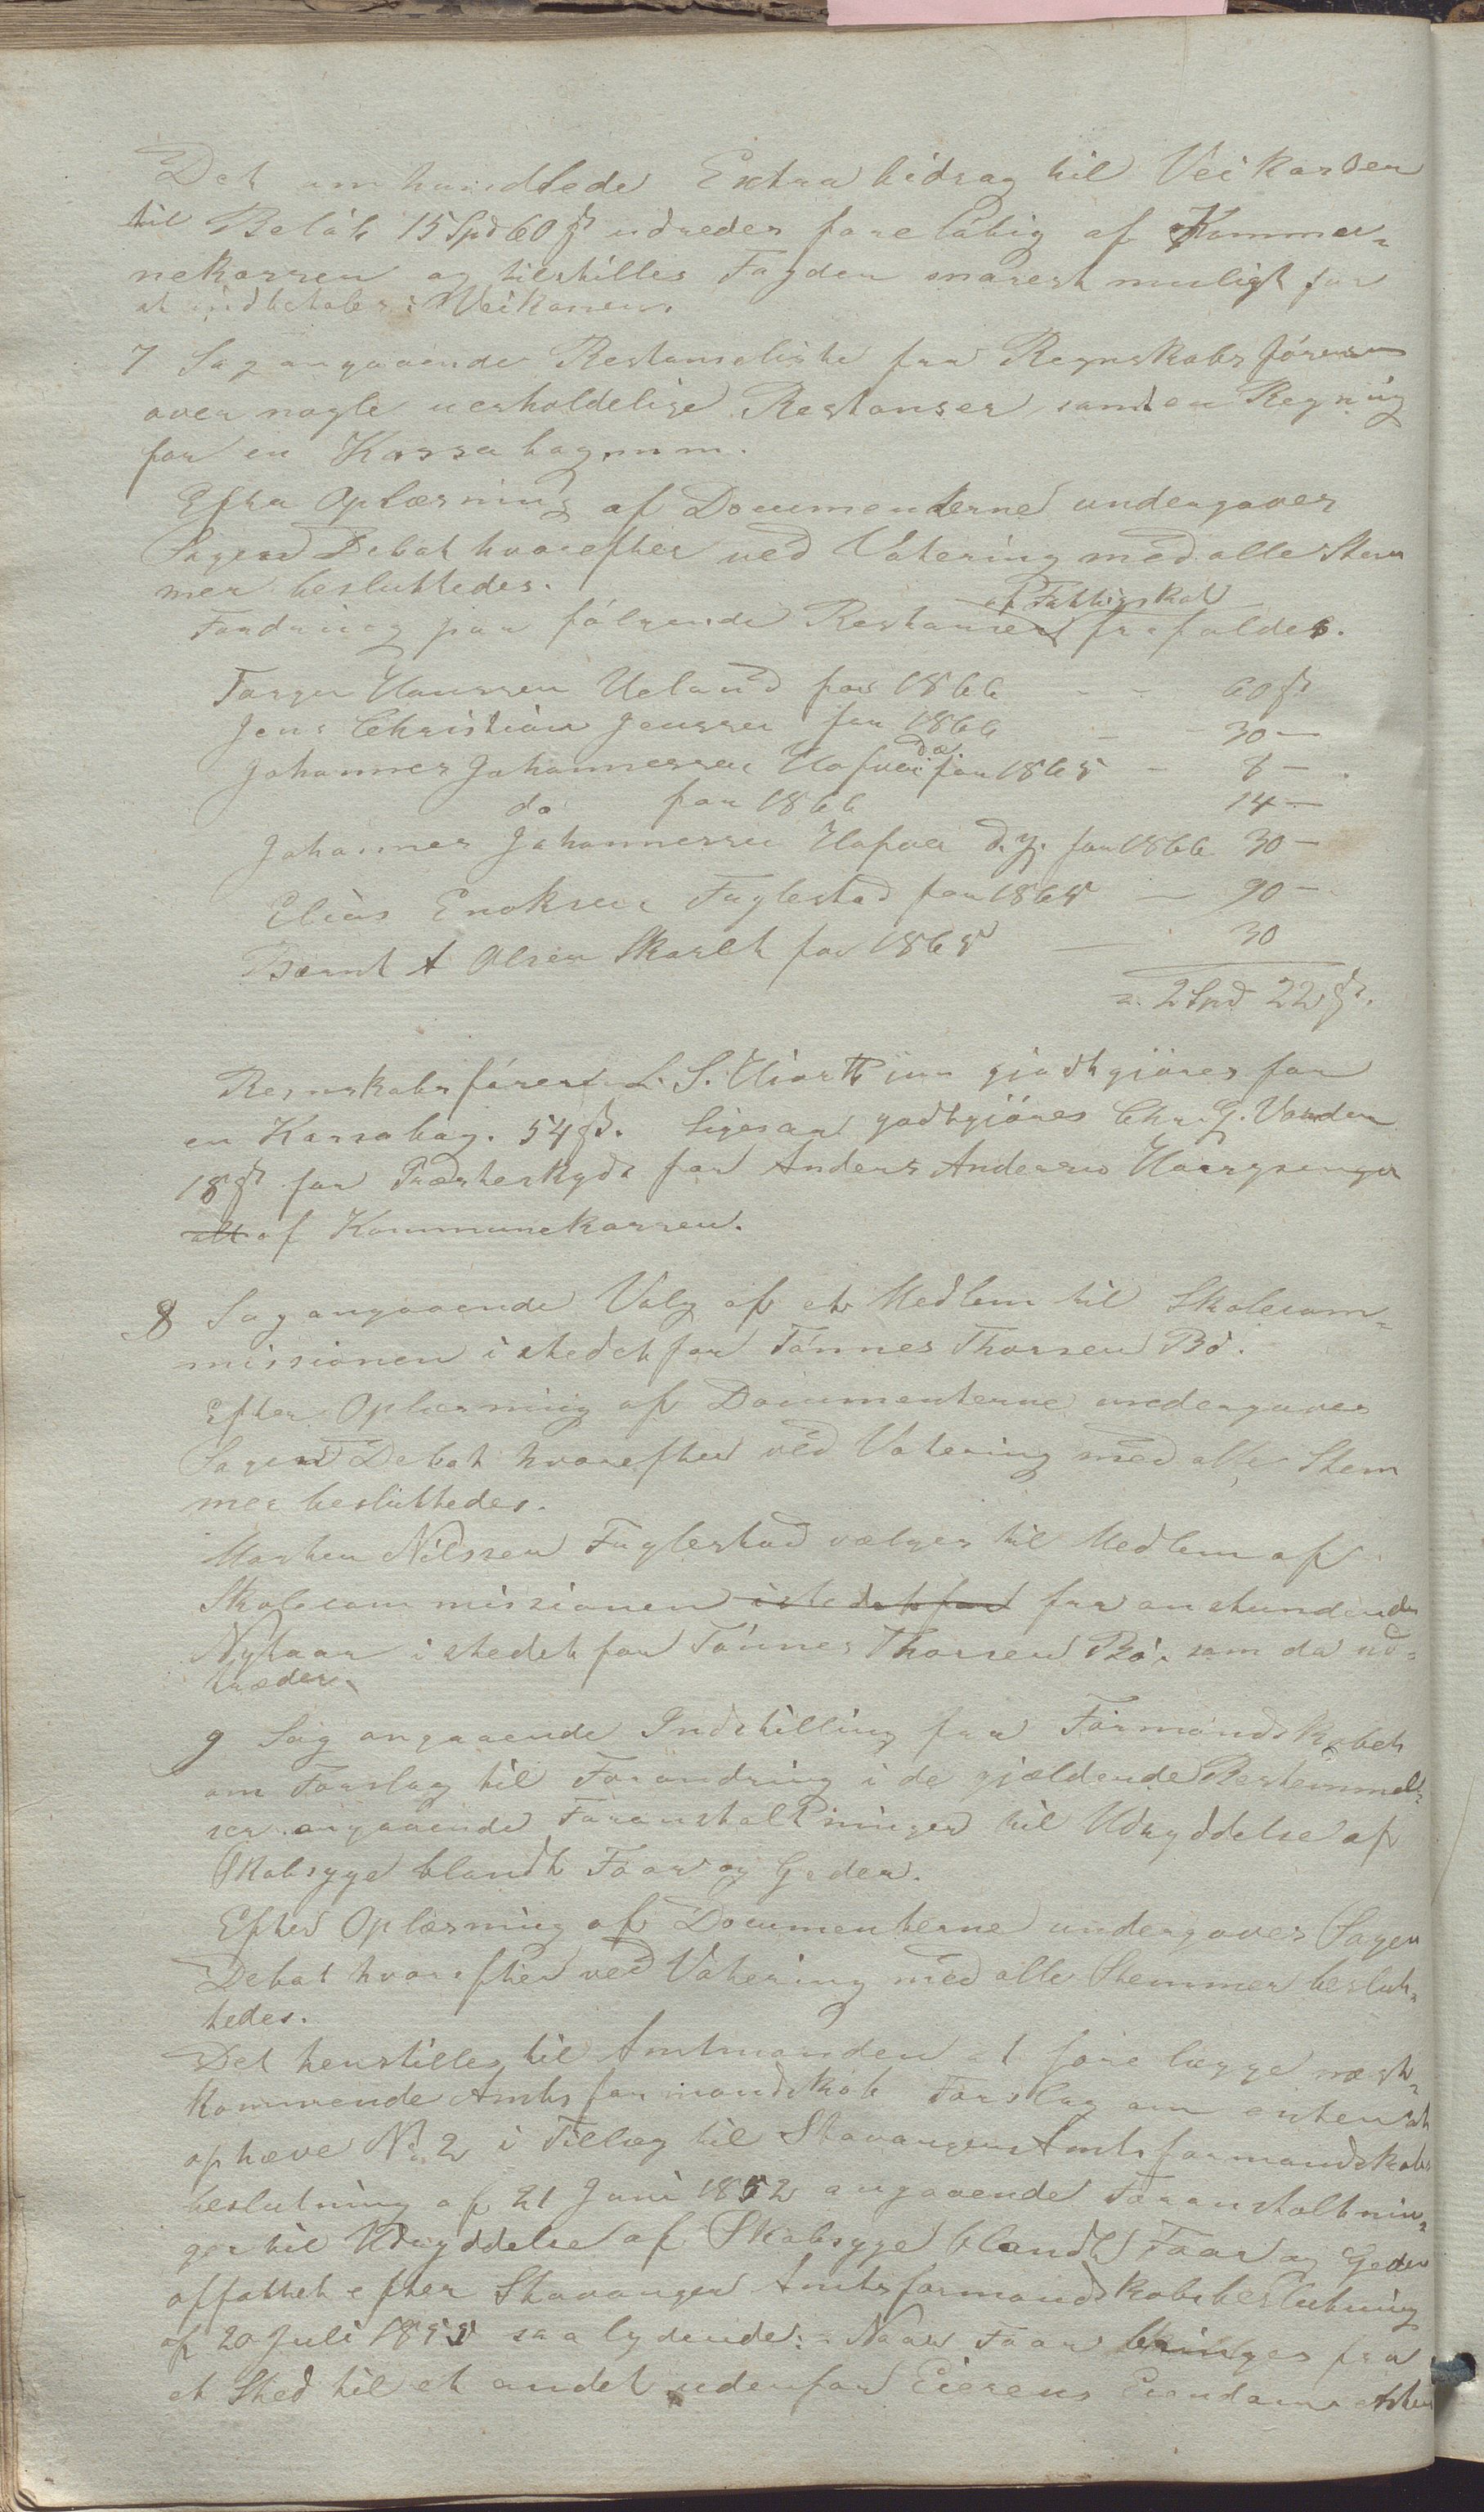 Det omhandlede Extrabidrag til Veikassen
til Beløb 15 Spd 60 ß udredes foreløbig af Kommu-
nekassen og tilstilles Fogden snarest muligt for
at indbetales i Veikassen.
7 Sag angaaende Restanseliste fra Regnskabsføreren
over nogle uerholdelige Restanser samt en Regning
for en Kassabog m.m.
Efter Oplæsning af Documenterne undergaves
Sagen Debat hvorefter ved Votering med alle Stem
mer besluttedes.
af Fattigskat
Fordring paa følgende Restanser frafaldes.
Torger Hanssen Ueland for 1866 - - 60 ß
Jens Christian Jenssen for 1866 - - 30 —
Johannes Johannessen Hafsøe d. æ. for 1865 - 8 —
do for 1866 14 —
Johannes Johannessen Hafsøe d. y. for 1866 30 —
Elias Enoksen Fuglestad for 1865 — 90 —
Bernt A Olsen Skaret for 1865 — 30
= 2 Spd 22 ß.
Regnskabsføreren L. S. Hiorth jun godtgjøres for
en Kassabog. 54 ß. Ligesaa godtgjøres Chr. G.
18 ß for Præsteskyds for Anders Anderssen
alt af Kommunekassen.
8 Sag angaaende Valg af et Medlem til Skolecom-
missionen istedetfor Tønnes Thorsen Bø.
Efter Oplæsning af Documenterne undergaves
Sagen Debat hvorefter ved Votering med alle Stem
mer besluttedes.
Morten Nilssen Fuglestad vælges til Medlem af
Skolecommissionen istedetfor fra anstundende
Nytaar istedetfor Tønnes Thorsen Bø, som da ud-
træder.
9 Sag angaaende Indstilling fra Formandskabet
om Forslag til Forandring i de gjældende Bestemmel-
ser angaaende Foranstaltninger til Udryddelse af
Skabsyge blandt Faar og Geder.
Efter Oplæsning af Documenterne undergaves Sagen
Debat hvorefter ved Votering med alle Stemmer beslut-
tedes.
Det henstilles til Amtmanden at forelægge næst-
kommende Amtsformandskab Forslag om enten at
ophæve No 2 i Tillæg til Stavanger Amtsformandskabs
beslutning af 21 Juni 1852 angaaende Foranstaltnin-
ger til Udryddelse af Skabsyge blandt Faar og Geder
affattet efter Stavanger Amtsformandskabsbeslutning
af 20 Juli 1855 saa lydende: Naar Faar bringes fra
et Sted til et andet udenfor Eierens Eiendom